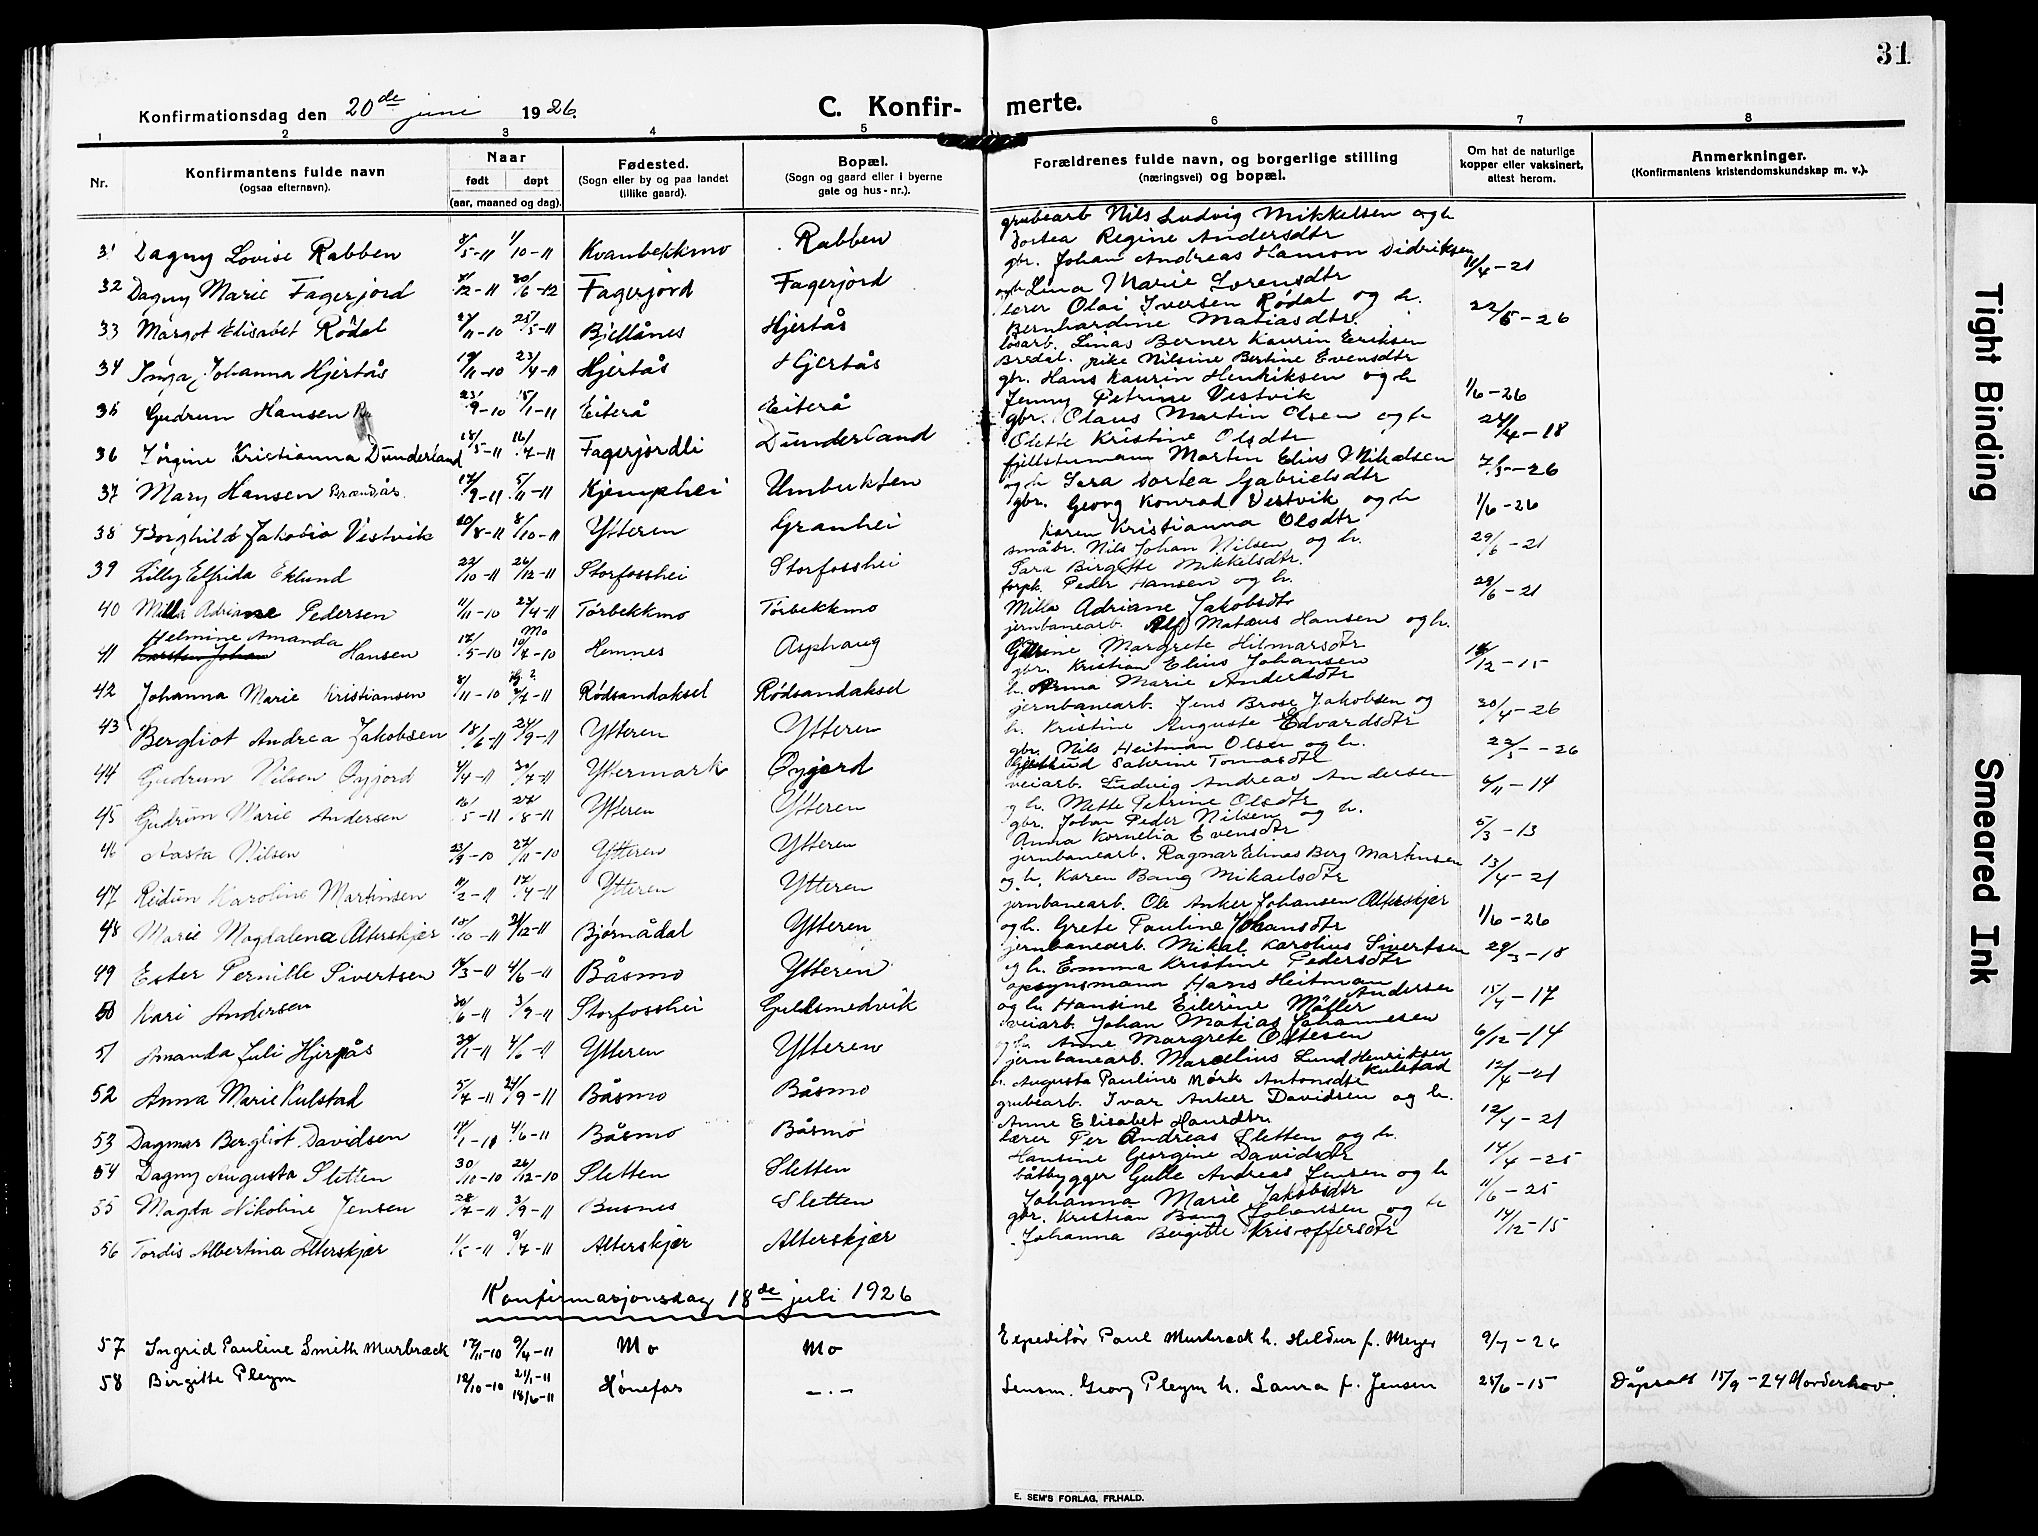 31
Konfirmationsdag den 20de juni 1926.
C. Konfir- merte.
1 2 3 4 5 6 7 8
Nr.
Konfirmantens fulde navn (ogsaa efternavn).
Naar født døpt (aar, maaned og dag).
Fødested. (Sogn eller by og paa landet tillike gaard).
Bopæl. (Sogn og gaard eller i byerne gate og hus-nr.).
Forældrenes fulde navn, og borgerlige stilling (næringsvei) og bopæl.
Om hat de naturlige kopper eller vaksinert, attest herom.
Anmerkninger. (Konfirmantens kristendomskundskap m. v.).
31 Dagny Lovise Rabben 3/5-11 1/10-11 Kvanbekkmo Rabben grubearb Nils Ludvig Mikkelsen og h
Dortea Regine Andersdtr
32 Dagny Marie Fagerjord /12-11 30/6-12 Fagerjord Fagerjord gbr. Johan Andreas Hamon Didriksen 11/4-21
og h Lina Marie Sorensdtr
33 Margot Elisabet Rødal 27/11-10 25/5-11 Bjellånes Hjertås lærer Olai Iversen Rødal og h. 22/5-26
Bernhardine Matiasdtr.
34 Inga Johanna Hjertås 19/11-10 23/4-11 Hjertås Hjertås løsarb. Linas Berner Kaurin Eriksen
Bredal. pike Nilsine Bertine Evensdtr
35 Gudrun Hansen 23/9-10 15/1-11 Eiterå Eiterå gbr. Hans Kaurin Henriksen og h 1/6-26
Jenny Petrine Vestvik
36 Jørgine Kristianna Dunderland 18/5-11 16/7-11 Fagerjordli Dunderland gbr. Olaus Martin Olsen og h 24/4-18
Olette Kristine Olsdtr
37 Mary Hansen Brændås. 17/9-11 5/11-11 Kjemphei Umbukten fjellstumann Martin Elius Mikalsen 7/5-26
og h Sara Dortea Gabrielsdtr
38 Borghild Jakobia Vestvik 20/8-11 8/10-11 Ytteren Granhei gbr. Georg Konrad Vestvik og h 1/6-26
Karen Kristianna Olsdtr
39 Lilly Elfrida Eklund 22/10-11 26/12-11 Storfosshei Storfosshei småbr. Nils Johan Nilsen og h. 29/6-21
Sara Birgitte Mikkelsdtr.
40 Milla Adriane Pedersen 11/11-10 23/4-11 Tørbekkmo Tørbekkmo forpk. Peder Hansen og h. 29/6-21
Milla Adriane Jakobsdtr
Helmine Amanda Mo
41 Karsten Johan Hansen 17/5-10 19/7-10 Hemnes Asphaug jernbanearb. Alf Mataus Hansen og h.
Margrete Hilmarsdtr
42 Johanna Marie Kristiansen 8/11-10 /7-11 Rødsandaksel Rødsandaksel gbr. Kristian Elius Johansen /12-15
h. Anna Marie Andersdtr
43 Bergliot Andrea Jakobsen 18/6-11 24/9-11 Ytteren Ytteren jernbanearb. Jens Brose Jakobsen og 30/4-26
h. Kristine Auguste Edvardsdtr
44 Gudrun Nilsen Øyjord 4/4-11 30/7-11 Yttermark Øyjord gbr. Nils Heitman Olsen og h. 22/5-26
Gjertrud Satrine Tomasdtr
45 Gudrun Marie Andersen 16/5-11 27/8-11 Ytteren Ytteren veiarb. Ludvig Andreas Andersen 6/11-14
og h. Mette Petrine Olsdtr
46 Aasta Nilsen 23/9-10 27/11-10 Ytteren Ytteren gbr. Johan Peder Nilsen og h. 5/3-13
Anna Kornelia Evensdtr
47 Reidun Karoline Martinsen 11/2-11 17/4-11 Ytteren Ytteren jernbanearb. Ragnar Elinas Berg Martinsen 13/4-21
og h. Karen Bang Mikaelsdtr
48 Marie Magdalena Alterskjær 15/10-11 31/12-11 Bjørnådal Ytteren jernbanearb. Ole Anker Johansen Alterskjær 1/6-26
og h. Grete Pauline Johansdtr
49 Ester Pernille Sivertsen 17/3-11 4/6-11 Båsmo Ytteren jernbanearb. Mikal Karolius Sivertsen 29/3-18
og h. Emma Kristine Pedersdtr
50 Kari Andersen 30/6-11 3/9-11 Storfosshei Guldsmedvik opsynsmann Hans Heitman Andersen 15/4-17
og h. Hansine Eilerine Møller
51 Amanda Juli Hjerpås 29/1-11 4/6-11 Ytteren Ytteren veiarb. Johan Matias Johannesen 6/12-14
og h. Anne Margrete Oltesen
52 Anna Marie Kulstad 5/7-11 24/9-11 Båsmo Båsmo jernbanearb. Marcelius Lund Henriksen Kulstad 12/4-21
h. Augusta Pauline Mørk Antonsdtr
53 Dagmar Bergliot Davidsen 14/1-11 4/6-11 Båsmo Båsmo grubearb. Ivar Anker Davidsen og h. 12/4-21
Anne Elisabet Hansdtr.
54 Dagny Augusta Sletten 30/10-10 26/12-10 Sletten Sletten lærer Per Andreas Sletten og h. 14/4-25
Hansine Georgine Davidsdtr
55 Magda Nikoline Jensen 28/7-11 3/9-11 Busnes Sletten båtbygger Gulle Andreas Jensen og h 11/6-25
Johanna Marie Jakobsdtr
56 Tordis Albertina Alterskjær 1/5-11 9/7-11 Alterskjær Alterskjær gbr. Kristian Bang Johansen og h 14/12-15
Johanna Beigitte Kristoffersdtr
Konfirmasjonsdag 18de juli 1926
57 Ingrid Pauline Smith Murbræck 17/11-10 9/4-11 Mo Mo Expeditør Paul Murbræck h. Hildur f. Meyer 9/7-26
58 Birgitte Pleym 12/10-10 21/1-11 18/6-11 Hønefos -.- Lensm. Georg Pleym h. Laura f. Jensen 25/6-15 Dåpsatt 15/9-24 Norderhov.
E. SEM'S FORLAG, FR.HALD.
Tight Binding
Smeared Ink